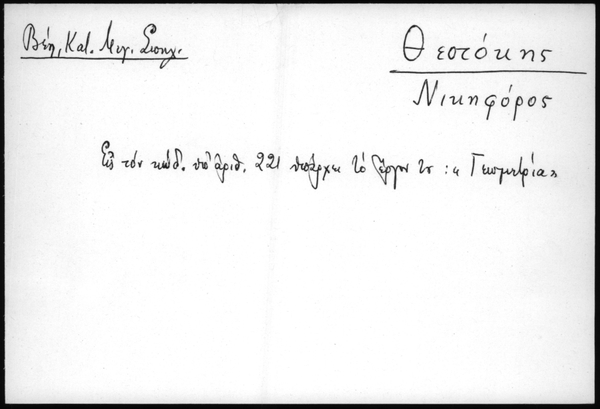 Βέη, Κατ. Μεγ. Σπηλ.
Θεοτόκης
Νικηφόρος
Εἰς τόν κώδ. ὑπ' ἀριθ. 221 ὑπάρχει τό ἔργον του : « Γεωμετρία»